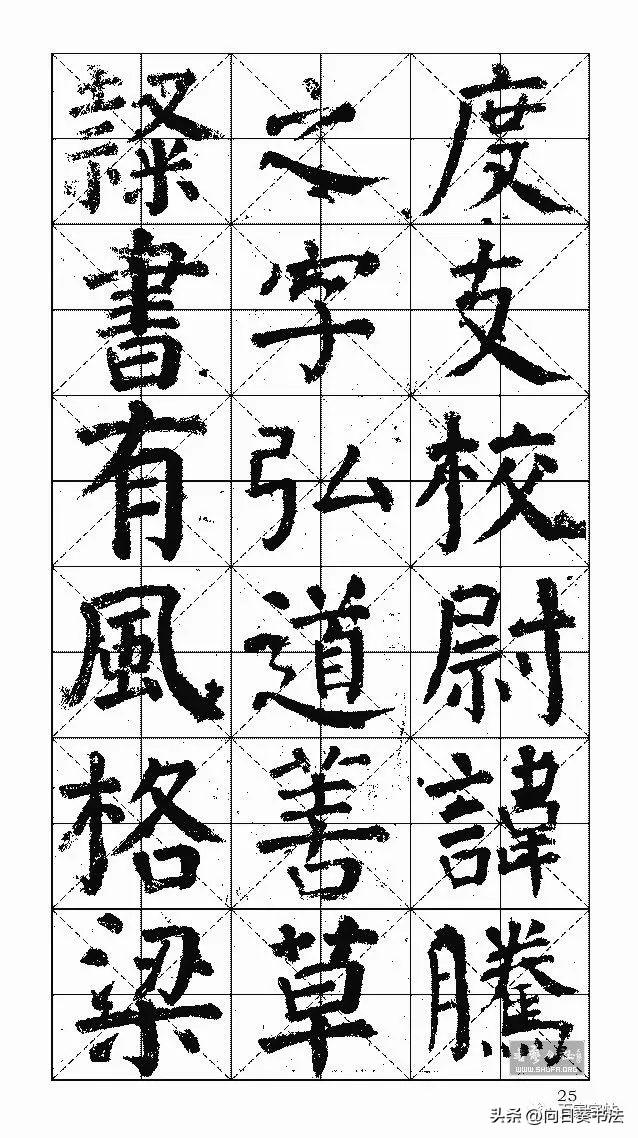 度支校尉諱騰
之字弘道善草
隸書有風格梁
WWW.SHUFA.ORG
25
头条 @向日葵书法